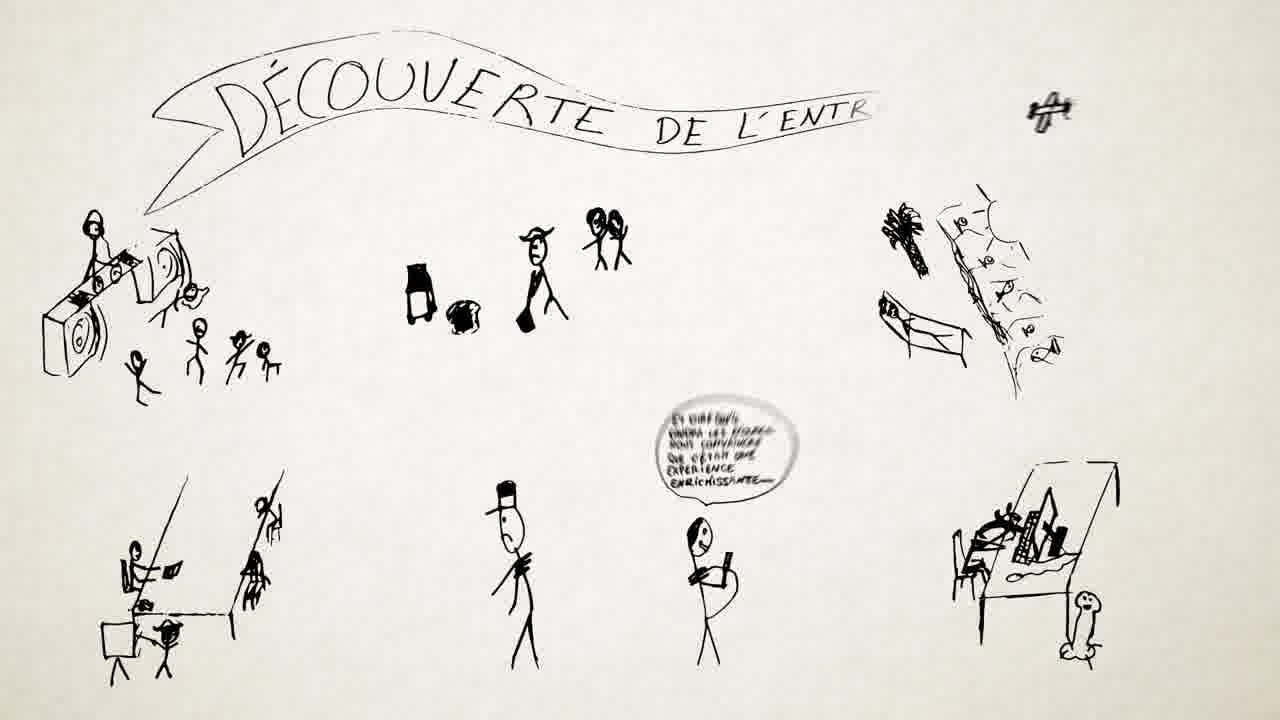 DÉCOUVERTE DE L'ENTR
ET DIRE QU'IL
FAUDRA LES
NOUS CONVAINCRE
QUE C'ÉTAIT UNE
EXPÉRIENCE
ENRICHISSANTE...